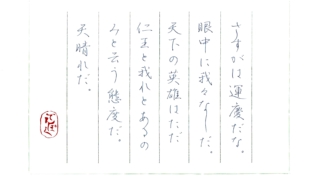 さすがは運慶だな。
眼中に我々なしだ。
天下の英雄はただ
仁王と我れとあるの
みと云う態度だ。
天晴れだ。